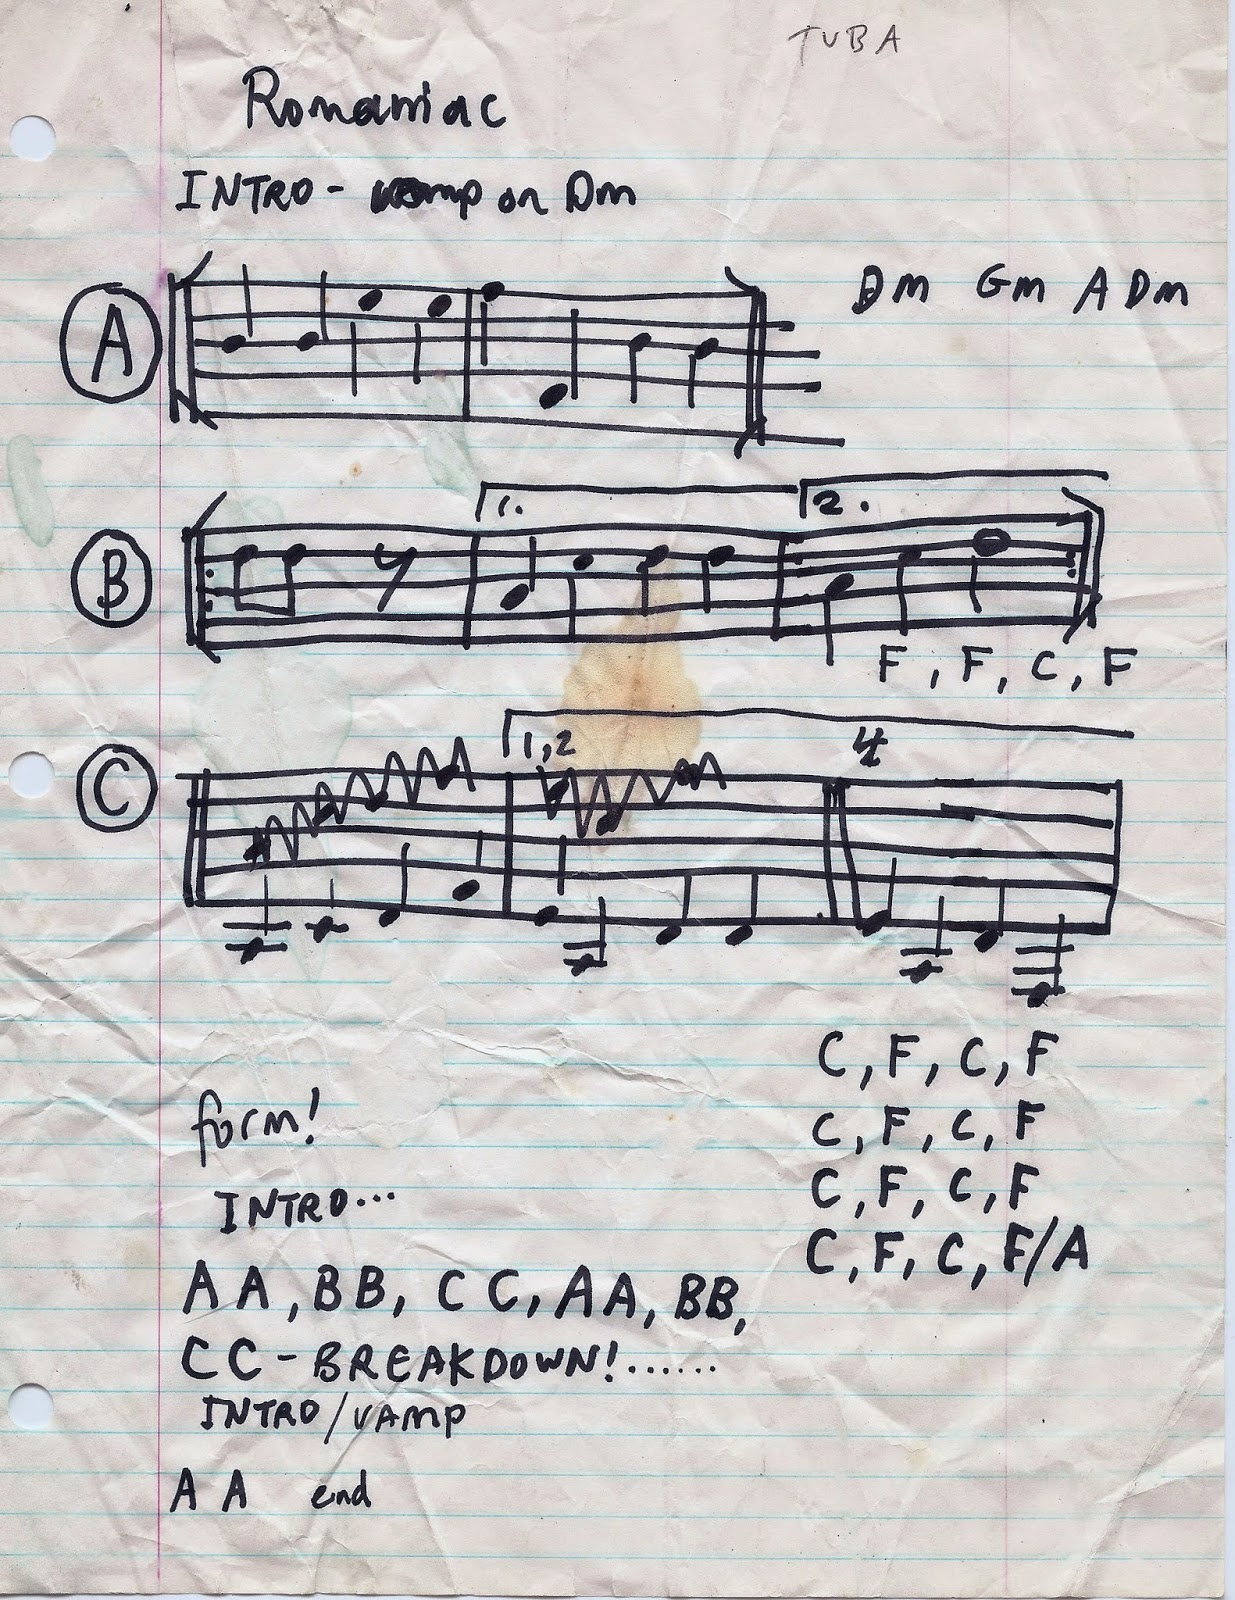 TUBA
Romaniac
INTRO - vamp on Dm
A
Dm Gm A Dm
1.
2.
B
F, F, C, F
1,2
4
C
C, F, C, F
C, F, C, F
C, F, C, F
C, F, C, F/A
form!
INTRO...
AA, BB, CC, AA, BB,
CC - BREAKDOWN!......
INTRO/VAMP
AA end